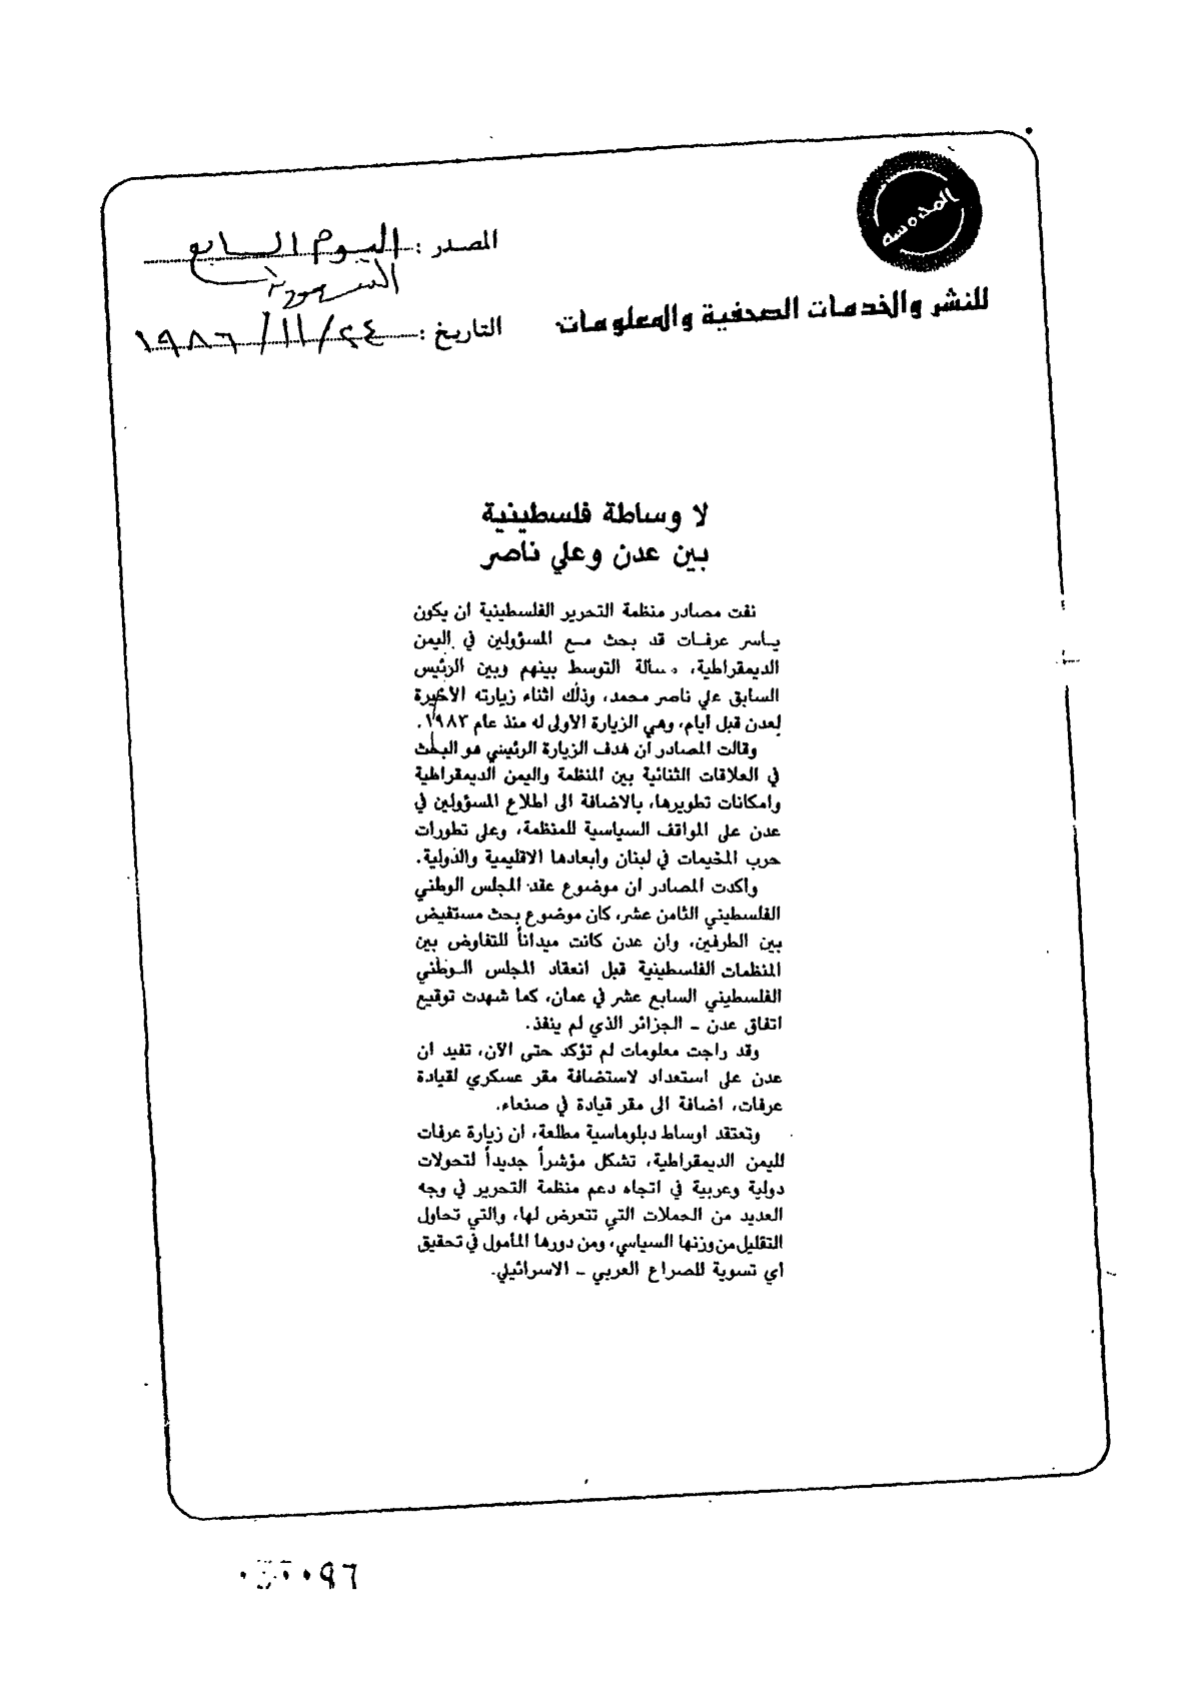 المدوسه
المصدر : اليوم السابع
التاريخ : ٢٤/١١/١٩٨٦
للنشر والخدمات الصحفية والمعلومات
لا وساطة فلسطينية
بين عدن وعلي ناصر
نفت مصادر منظمة التحرير الفلسطينية ان يكون
ياسر عرفات قد بحث مع المسؤولين في اليمن
الديمقراطية، مسالة التوسط بينهم وبين الرئيس
السابق علي ناصر محمد، وذلك اثناء زيارته الأخيرة
لعدن قبل ايام، وهي الزيارة الاولى له منذ عام ١٩٨٣.
وقالت المصادر ان هدف الزيارة الرئيسي هو البحث
في العلاقات الثنائية بين المنظمة واليمن الديمقراطية
وامكانات تطويرها، بالاضافة الى اطلاع المسؤولين في
عدن على المواقف السياسية للمنظمة، وعلى تطورات
حرب المخيمات في لبنان وأبعادها الاقليمية والدولية.
واكدت المصادر ان موضوع عقد المجلس الوطني
الفلسطيني الثامن عشر، كان موضوع بحث مستفيض
بين الطرفين، وان عدن كانت ميداناً للتفاوض بين
المنظمات الفلسطينية قبل انعقاد المجلس الوطني
الفلسطيني السابع عشر في عمان، كما شهدت توقيع
اتفاق عدن - الجزائر الذي لم ينفذ.
وقد راجت معلومات لم تؤكد حتى الآن، تفيد ان
عدن على استعداد لاستضافة مقر عسكري لقيادة
عرفات، اضافة الى مقر قيادة في صنعاء.
وتعتقد اوساط دبلوماسية مطلعة، ان زيارة عرفات
لليمن الديمقراطية، تشكل مؤشراً جديداً لتحولات
دولية وعربية في اتجاه دعم منظمة التحرير في وجه
العديد من الحملات التي تتعرض لها، والتي تحاول
التقليل من وزنها السياسي، ومن دورها المأمول في تحقيق
اي تسوية للصراع العربي - الاسرائيلي.